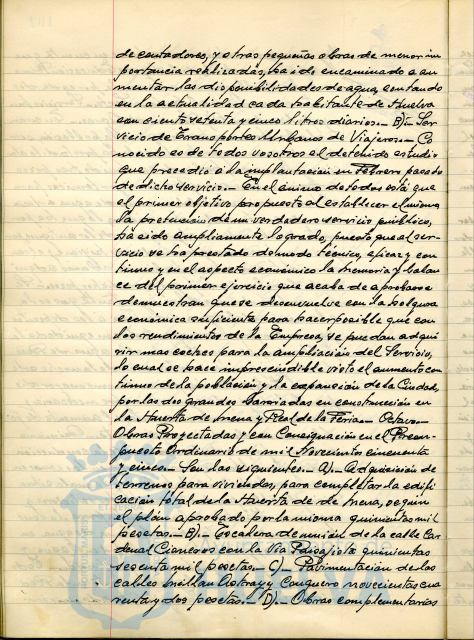 de contadores, y otras pequeñas obras de menor im
portancia realizadas, ha ido encaminado a au
mentar las disponibilidades de agua, contando
en la actualidad cada habitante de Huelva
con ciento setenta y cinco litros diarios.- B).- Ser
vicio de Transportes Urbanos de Viajeros.- Co
nocido es de todos vosotros el detenido estudio
que precedió a la implantación en Febrero pasado
de dicho servicio.- En el ánimo de todos está que
el primer objetivo propuesto al establecer el mismo,
la prestación de un verdadero servicio público,
ha sido ampliamente logrado, puesto que al ser-
vicio se ha prestado de modo técnico, eficaz y con
tinuo y en el aspecto económico la Memoria y balan
ce del primer ejercicio que acaba de aprobarse
demuestran que se desenvuelve con la holgura
económica suficiente para hacer posible que con
los rendimientos de la Empresa, se puedan adqui
rir mas coches para la ampliación del Servicio,
lo cual se hace imprescindible visto el aumento con
tinuo de la población y la expansión de la Ciudad,
por las dos grandes barriadas en construcción en
la Huerta de Mena y Real de la Feria.- Octavo.-
Obras Proyectadas y con Consignación en el Presu-
puesto Ordinario de mil novecientos cincuenta
y cinco.- Son las siguientes.- A).- Adquisición de
terrenos para viviendas, para completar la edifi
cación total de la Huerta de Mena, según
el plan aprobado por la misma quinientas mil
pesetas.- B).- Escalera de unión de la calle Car
denal Cisneros con la Vía Paisajista quinientas
sesenta mil pesetas.- C).- Pavimentación de las
calles Millan Astray y Conquero novecientas cua
renta y dos pesetas.- D).- Obras complementarias